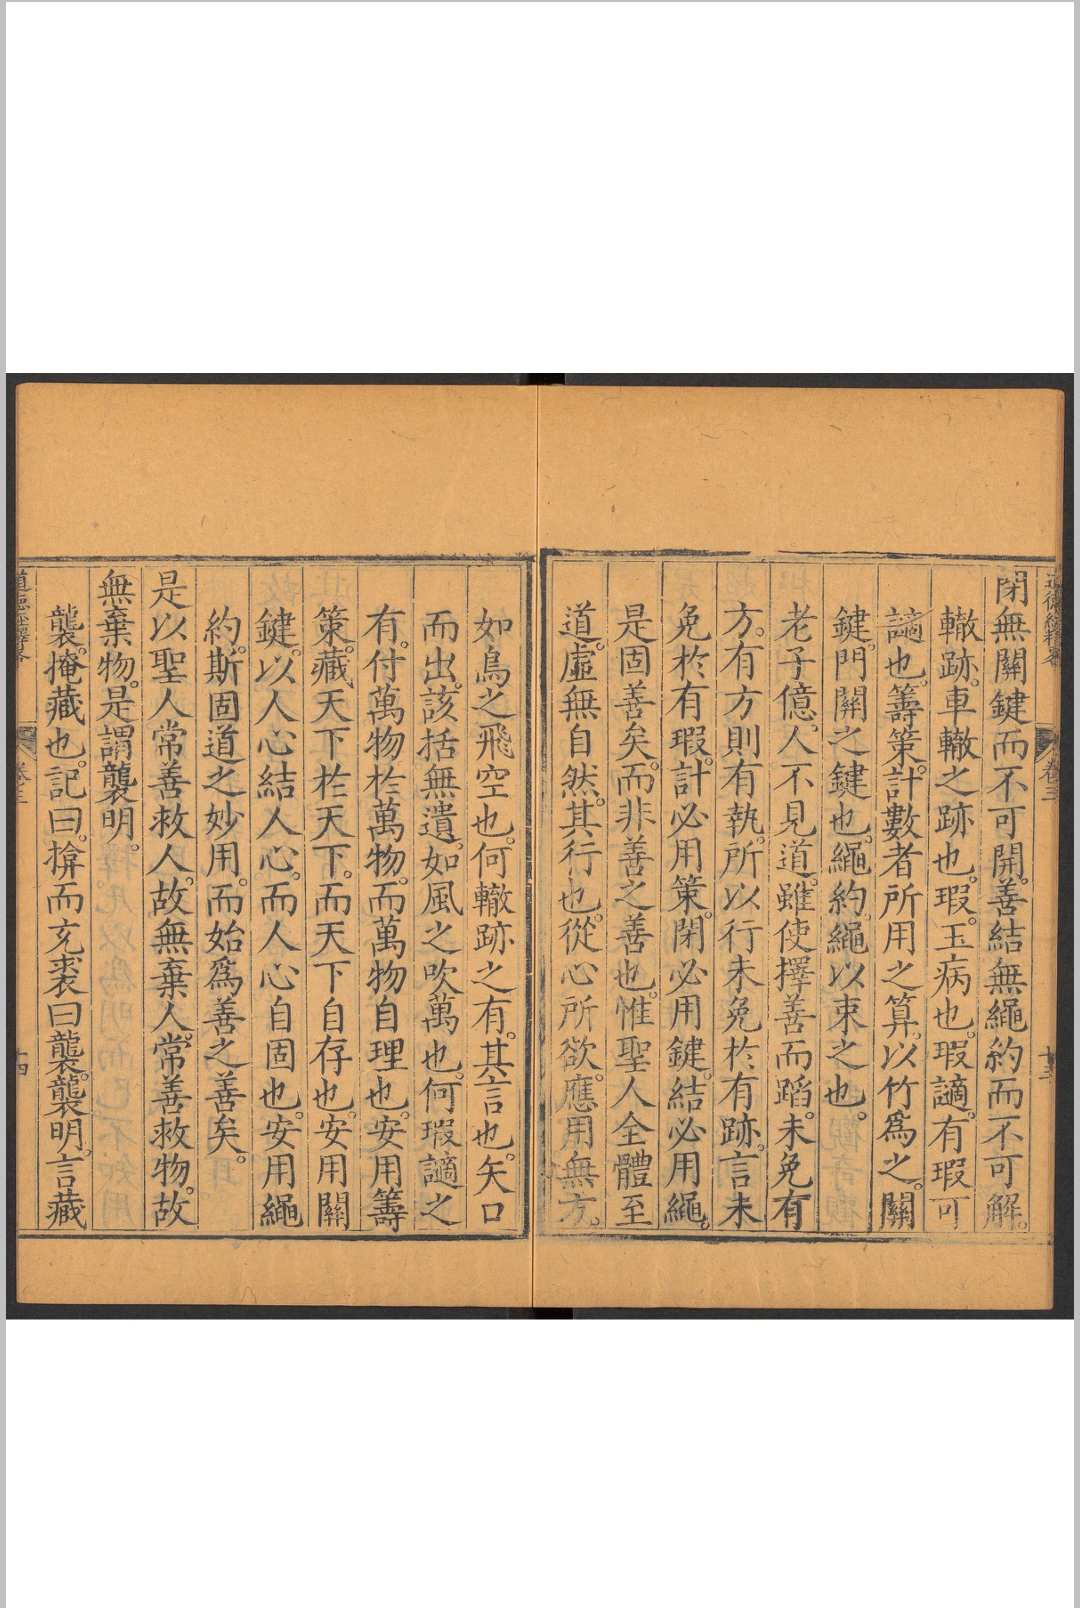 閉無關鍵而不可開。善結無繩約而不可解。
轍跡。車轍之跡也。瑕。玉病也。瑕讁。有瑕可
讁也。籌策。計數者所用之算。以竹爲之。關
鍵。門關之鍵也。繩約。繩以束之也。
老子億。人不見道。雖使擇善而蹈。未免有
方。有方則有執。所以行未免於有跡。言未
免於有瑕。計必用策。閉必用鍵。結必用繩。
是固善矣。而非善之善也。惟聖人全體至
道。虛無自然。其行也。從心所欲。應用無方。
如鳥之飛空也。何轍跡之有。其言也。矢口
而出。該括無遺。如風之吹萬也。何瑕讁之
有。付萬物於萬物。而萬物自理也。安用籌
策。藏天下於天下。而天下自存也。安用關
鍵。以人心結人心。而人心自固也。安用繩
約。斯固道之妙用。而始爲善之善矣。
是以聖人常善救人。故無棄人。常善救物。故
無棄物。是謂襲明。
襲。掩藏也。記曰。揜而充裘曰襲。襲明。言藏